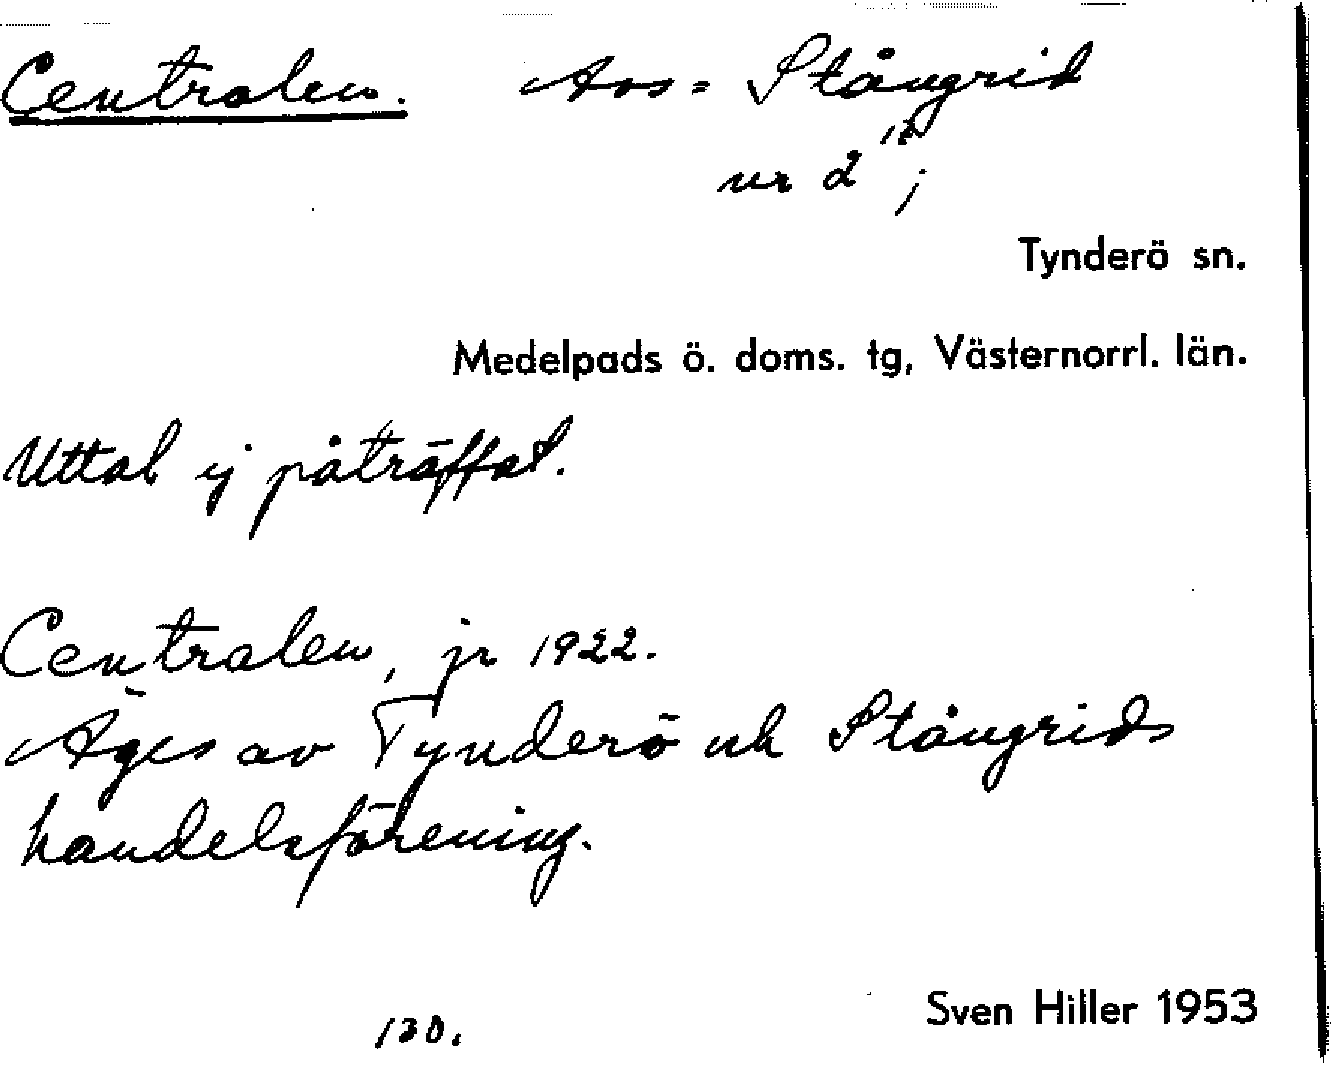 Centralen. Avs = Stångrid
nr 2¹²;
Tynderö sn.
Medelpads ö. doms. tg, Västernorrl. län.
Uttal ej påträffat.
Centralen, jr 1922.
Äges av Tynderö och Stångrids
handelsförening.
Sven Hiller 1953
130.